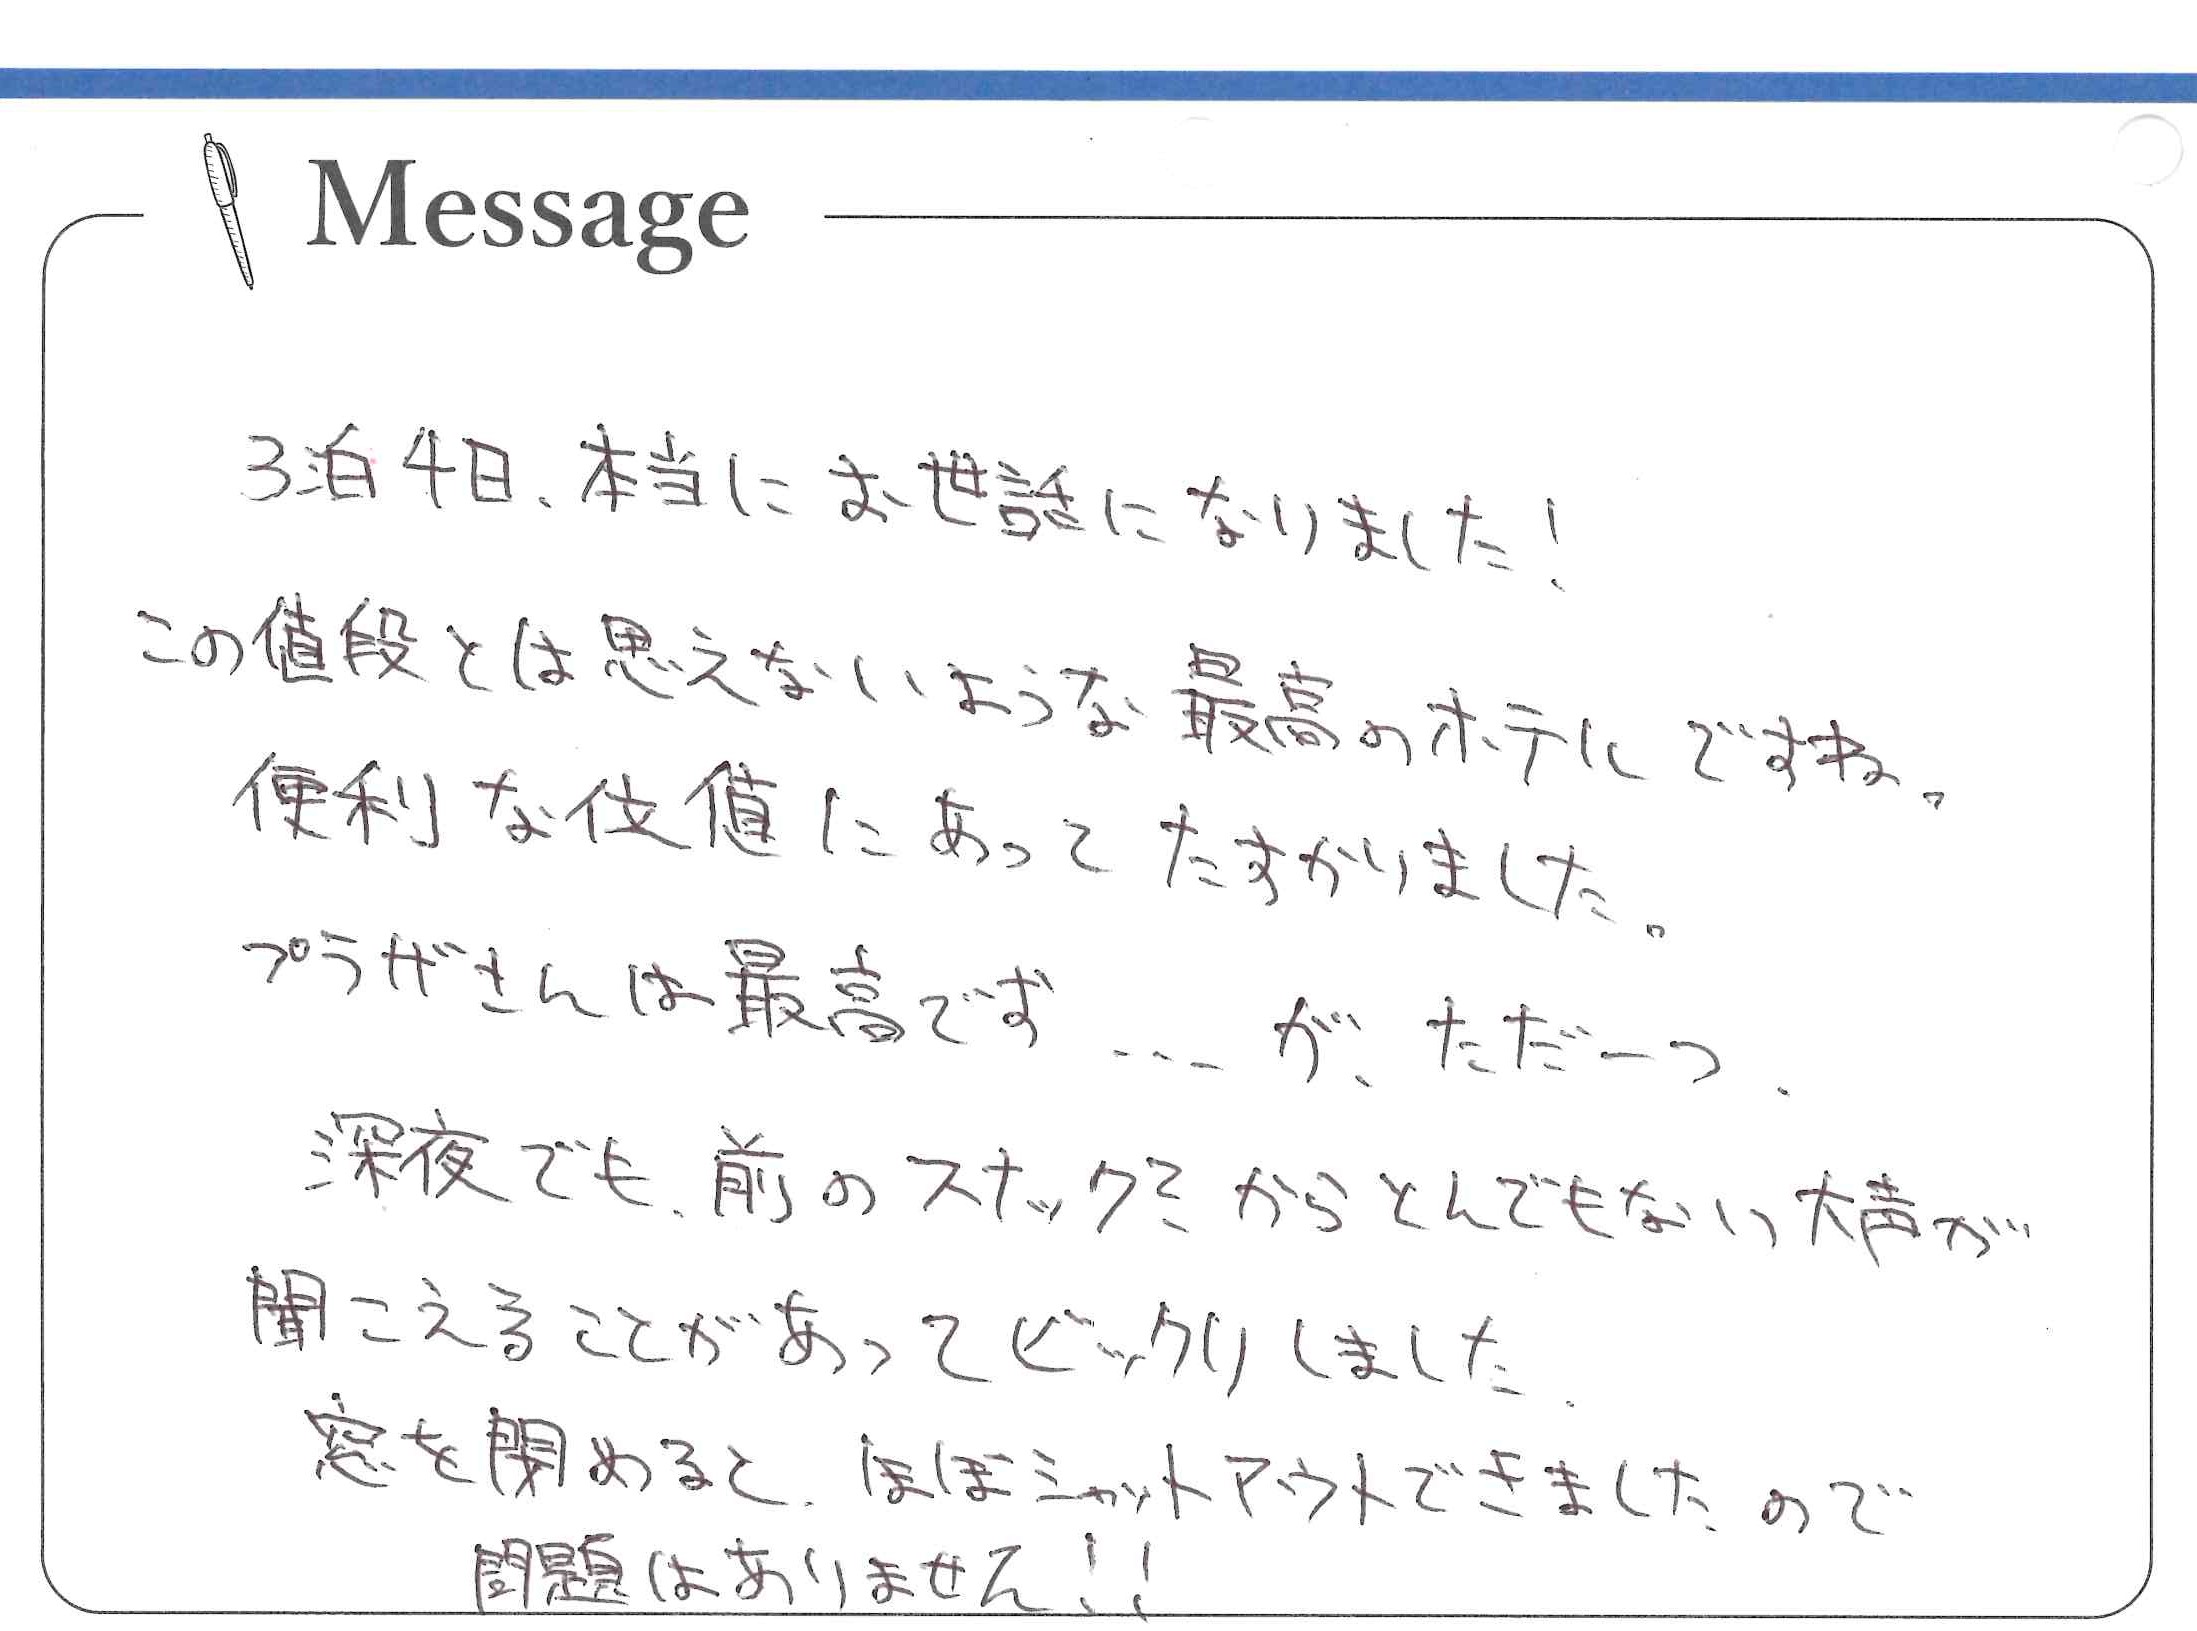 Message
3泊4日、本当にお世話になりました!
この値段とは思えないような最高のホテルですね。
便利な位値にあってたすかりました。
プラザさんは最高です…が、ただ一つ、
深夜でも、前のスナックミからとんでもない大声が
聞こえることがあってビックリしました、
窓を閉めると、ほぼシャットアウトできましたので
問題はありません!!